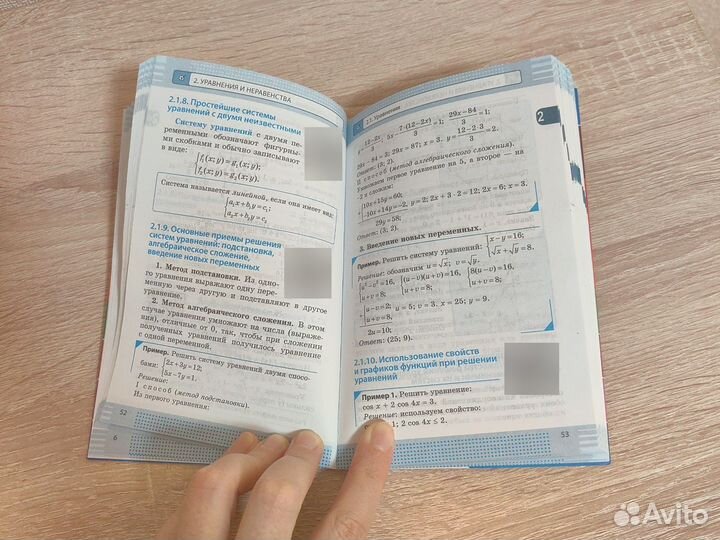 6
2. УРАВНЕНИЯ И НЕРАВЕНСТВА
2.1.8. Простейшие системы
уравнений с двумя неизвестными
Систему уравнений с двумя пе-
ременными обозначают фигурны-
ми скобками и обычно записывают
в виде:
{f₁(x; y) = g₁(x; y);
{f₂(x; y) = g₂(x; y).
Система называется линейной, если она имеет вид:
{a₁x + b₁y = c₁;
{a₂x + b₂y = c₂
2.1.9. Основные приемы решения
систем уравнений: подстановка,
алгебраическое сложение,
введение новых переменных
1. Метод подстановки. Из одно-
го уравнения выражают одну пере-
менную через другую и подставляют в другое
уравнение.
2. Метод алгебраического сложения. В этом
случае уравнения умножают на числа (выраже-
ния), отличные от 0, так, чтобы при сложении
полученных уравнений получилось уравнение
с одной переменной.
Пример. Решить систему уравнений двумя спосо-
бами: {2x + 3y = 12;
{5x − 7y = 1.
Решение:
I способ (метод подстановки).
Из первого уравнения:
52
6
2.1. Уравнения
2
12−2x/3, 5x − 7·(12−2x)/3 = 1; 29x − 84/3 = 1;
29x − 84 = 3; 29x = 87; x = 3. y = 12−2·3/3 = 2.
Ответ: (3; 2).
II способ (метод алгебраического сложения).
Умножаем первое уравнение на 5, а второе — на
−2 и сложим:
{10x + 15y = 60;
{−10x + 14y = −2, y = 2; 2x + 3 · 2 = 12; 2x = 6; x = 3.
29y = 58;
Ответ: (3; 2).
3. Введение новых переменных.
Пример. Решить систему уравнений: {x − y = 16,
{√x + √y = 8.
Решение: обозначим u = √x; v = √y,
{u² − v² = 16, {(u − v)(u + v) = 16, {8(u − v) = 16,
{u + v = 8; {u + v = 8; {u + v = 8;
{u − v = 2; u = 5; v = 3. x = 25; y = 9.
{u + v = 8,
2u = 10;
Ответ: (25; 9).
2.1.10. Использование свойств
и графиков функций при решении
уравнений
Пример 1. Решить уравнение:
cos x + 2 cos 4x = 3.
Решение: используем свойство:
1; 2 cos 4x ≤ 2.
53
Avito